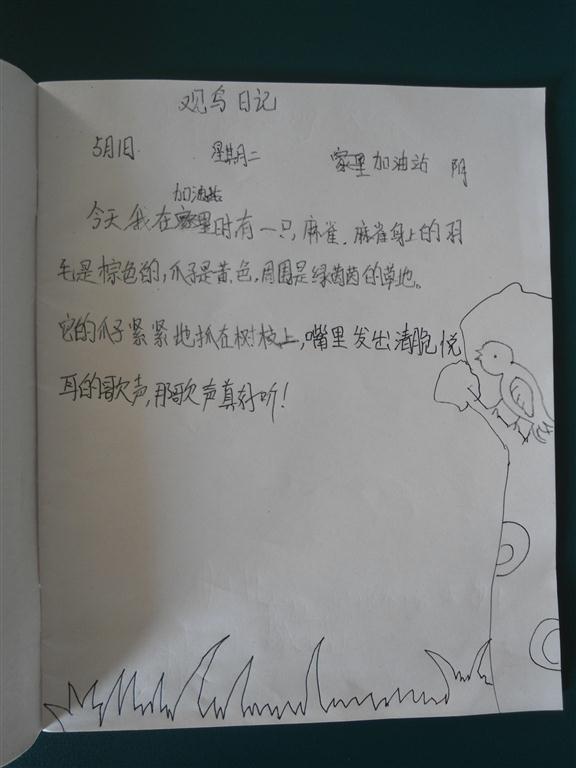 观鸟日记
5月1日 星期二 加油站 阴
加油站
今天我在时有一只麻雀.麻雀身上的羽
毛是棕色的,爪子是黄色,周围是绿茵茵的草地。
它的爪子紧紧地抓在树枝上,嘴里发出清脆悦
耳的歌声,那歌声真好听!